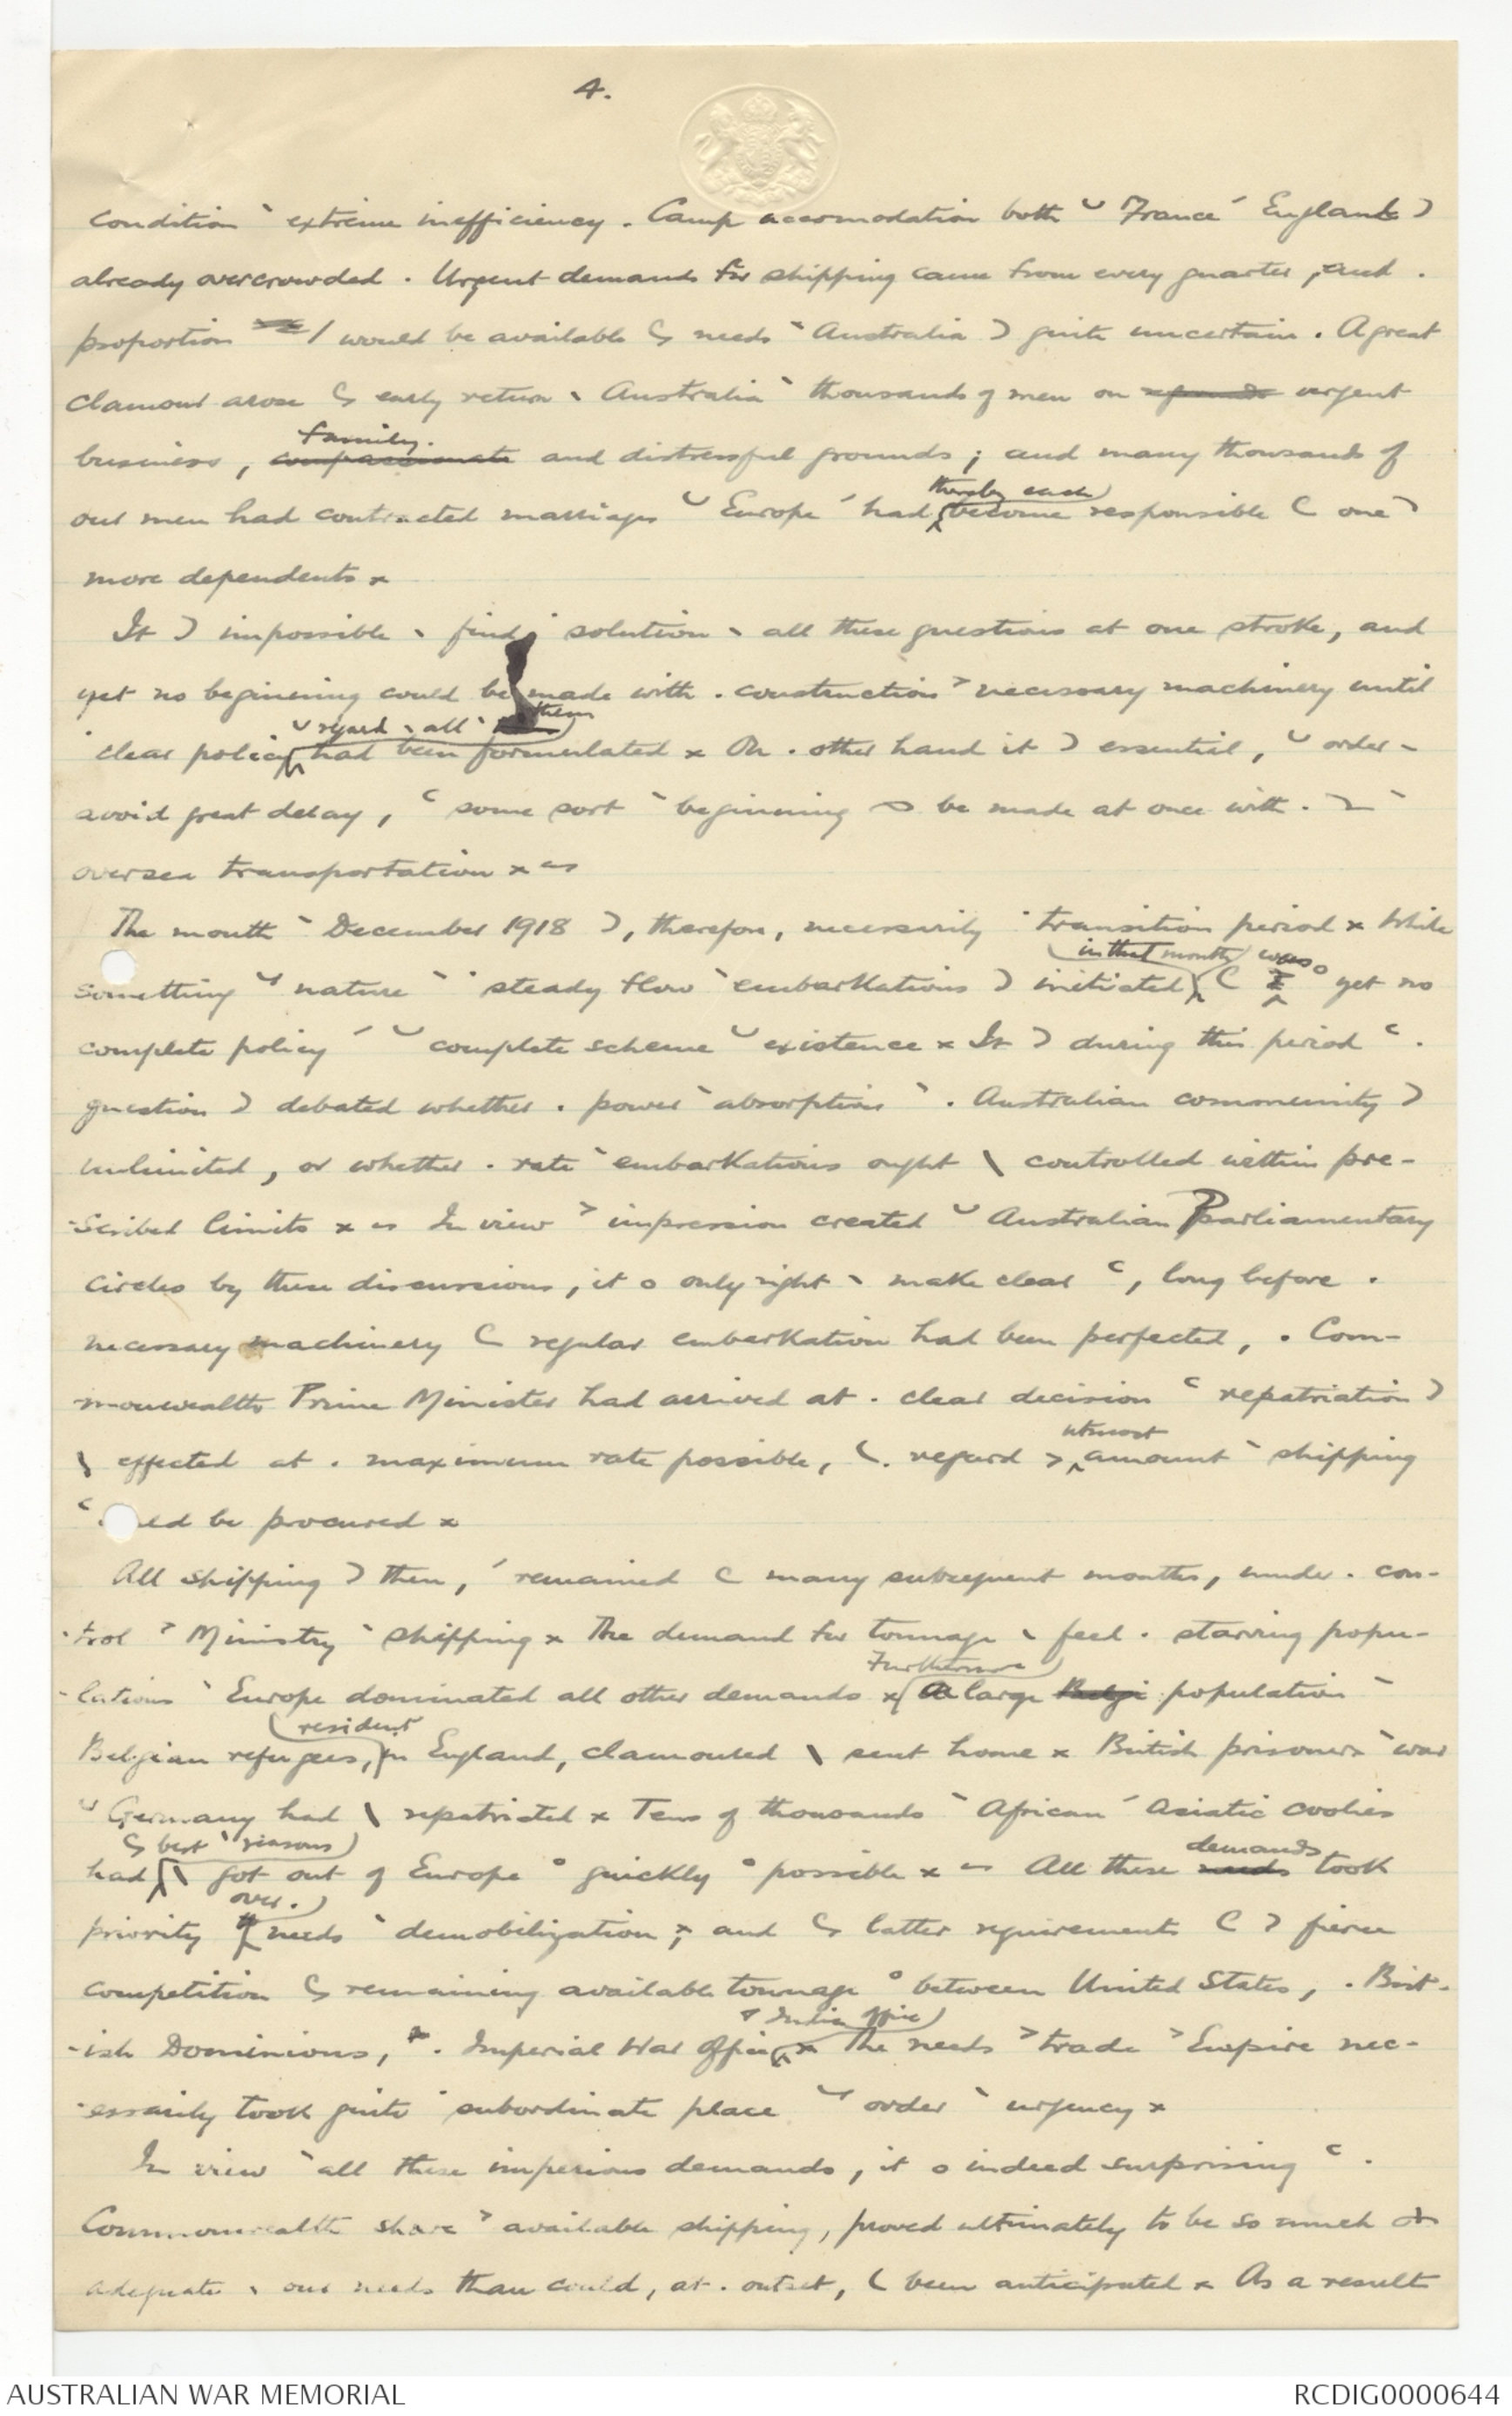 4.
condition ` extreme inefficiency. Camp accomodation both ᴗ France ´ England )
already overcrowded. Urgent demands for shipping came from every quarter, and .
proportion / would be available ↄ needs ` Australia ) quite uncertain. A great
clamour arose ↄ early return ` Australia ` thousands of men on urgent
family.
business, compassionate and distressful grounds; and many thousands of
thereby each
our men had contracted marriages ᴗ Europe ´ had become responsible ( one )
more dependents x
It ) impossible ` find ' solution ` all these questions at one stroke, and
yet no beginning could be made with . construction > necessary machinery until
ᴗ regard ` all ` them
' clear policy had been formulated x On . other hand it ) essential, ᴗ order `
avoid great delay, c some sort ` beginning be made at once with . `
oversea transportation x
The month ` December 1918 ), therefore, necessarily ' transition period x While
in that month was
something ᴗ nature ` ' steady flow ` embarkations ) initiated ( o yet no
complete policy ´ ᴗ complete scheme ᴗ existence x It ) during this period c .
question ) debated whether . power ` absorption ` . Australian community )
unlimited, or whether . rate ` embarkations ought \ controlled within pre-
-scribed limits x In view > impression created ᴗ Australian Parliamentary
circles by these discussions, it o only right ` make clear c, long before .
necessary machinery ( regular embarkation had been perfected, . Com-
-monwealth Prime Minister had arrived at . clear decision c repatriation )
utmost
\ effected at . maximum rate possible, (. regard > amount ` shipping
c ld be procured x
All shipping ) then, ´ remained ( many subsequent months, under . con-
-trol > Ministry ` shipping x The demand for tonnage ` feed . starving popu-
Furthermore
-lations ` Europe dominated all other demands x A large Belgi population `
resident
Belgian refugees, in England, clamoured \ sent home x British prisoners ` war
ᴗ Germany had \ repatriated x Tens of thousands ` African ´ Asiatic coolies
ↄ best ` reasons demands
had \ got out of Europe o quickly o possible x All these needs took
over .
priority needs ` demobilization; and ↄ latter requirements ( ) fierce
competition ↄ remaining available tonnage o between United States, . Brit-
& India Office
-ish Dominions, . Imperial War Office x The needs > trade > Empire nec-
-essarily took quite ' subordinate place ᴗ order ` urgency x
In view ` all these imperious demands, it o indeed surprising c .
Commonwealth share > available shipping, proved ultimately to be so much
adequate ` our needs than could, at . outset, ( been anticipated x As a result
AUSTRALIAN WAR MEMORIAL
RCDIG0000644